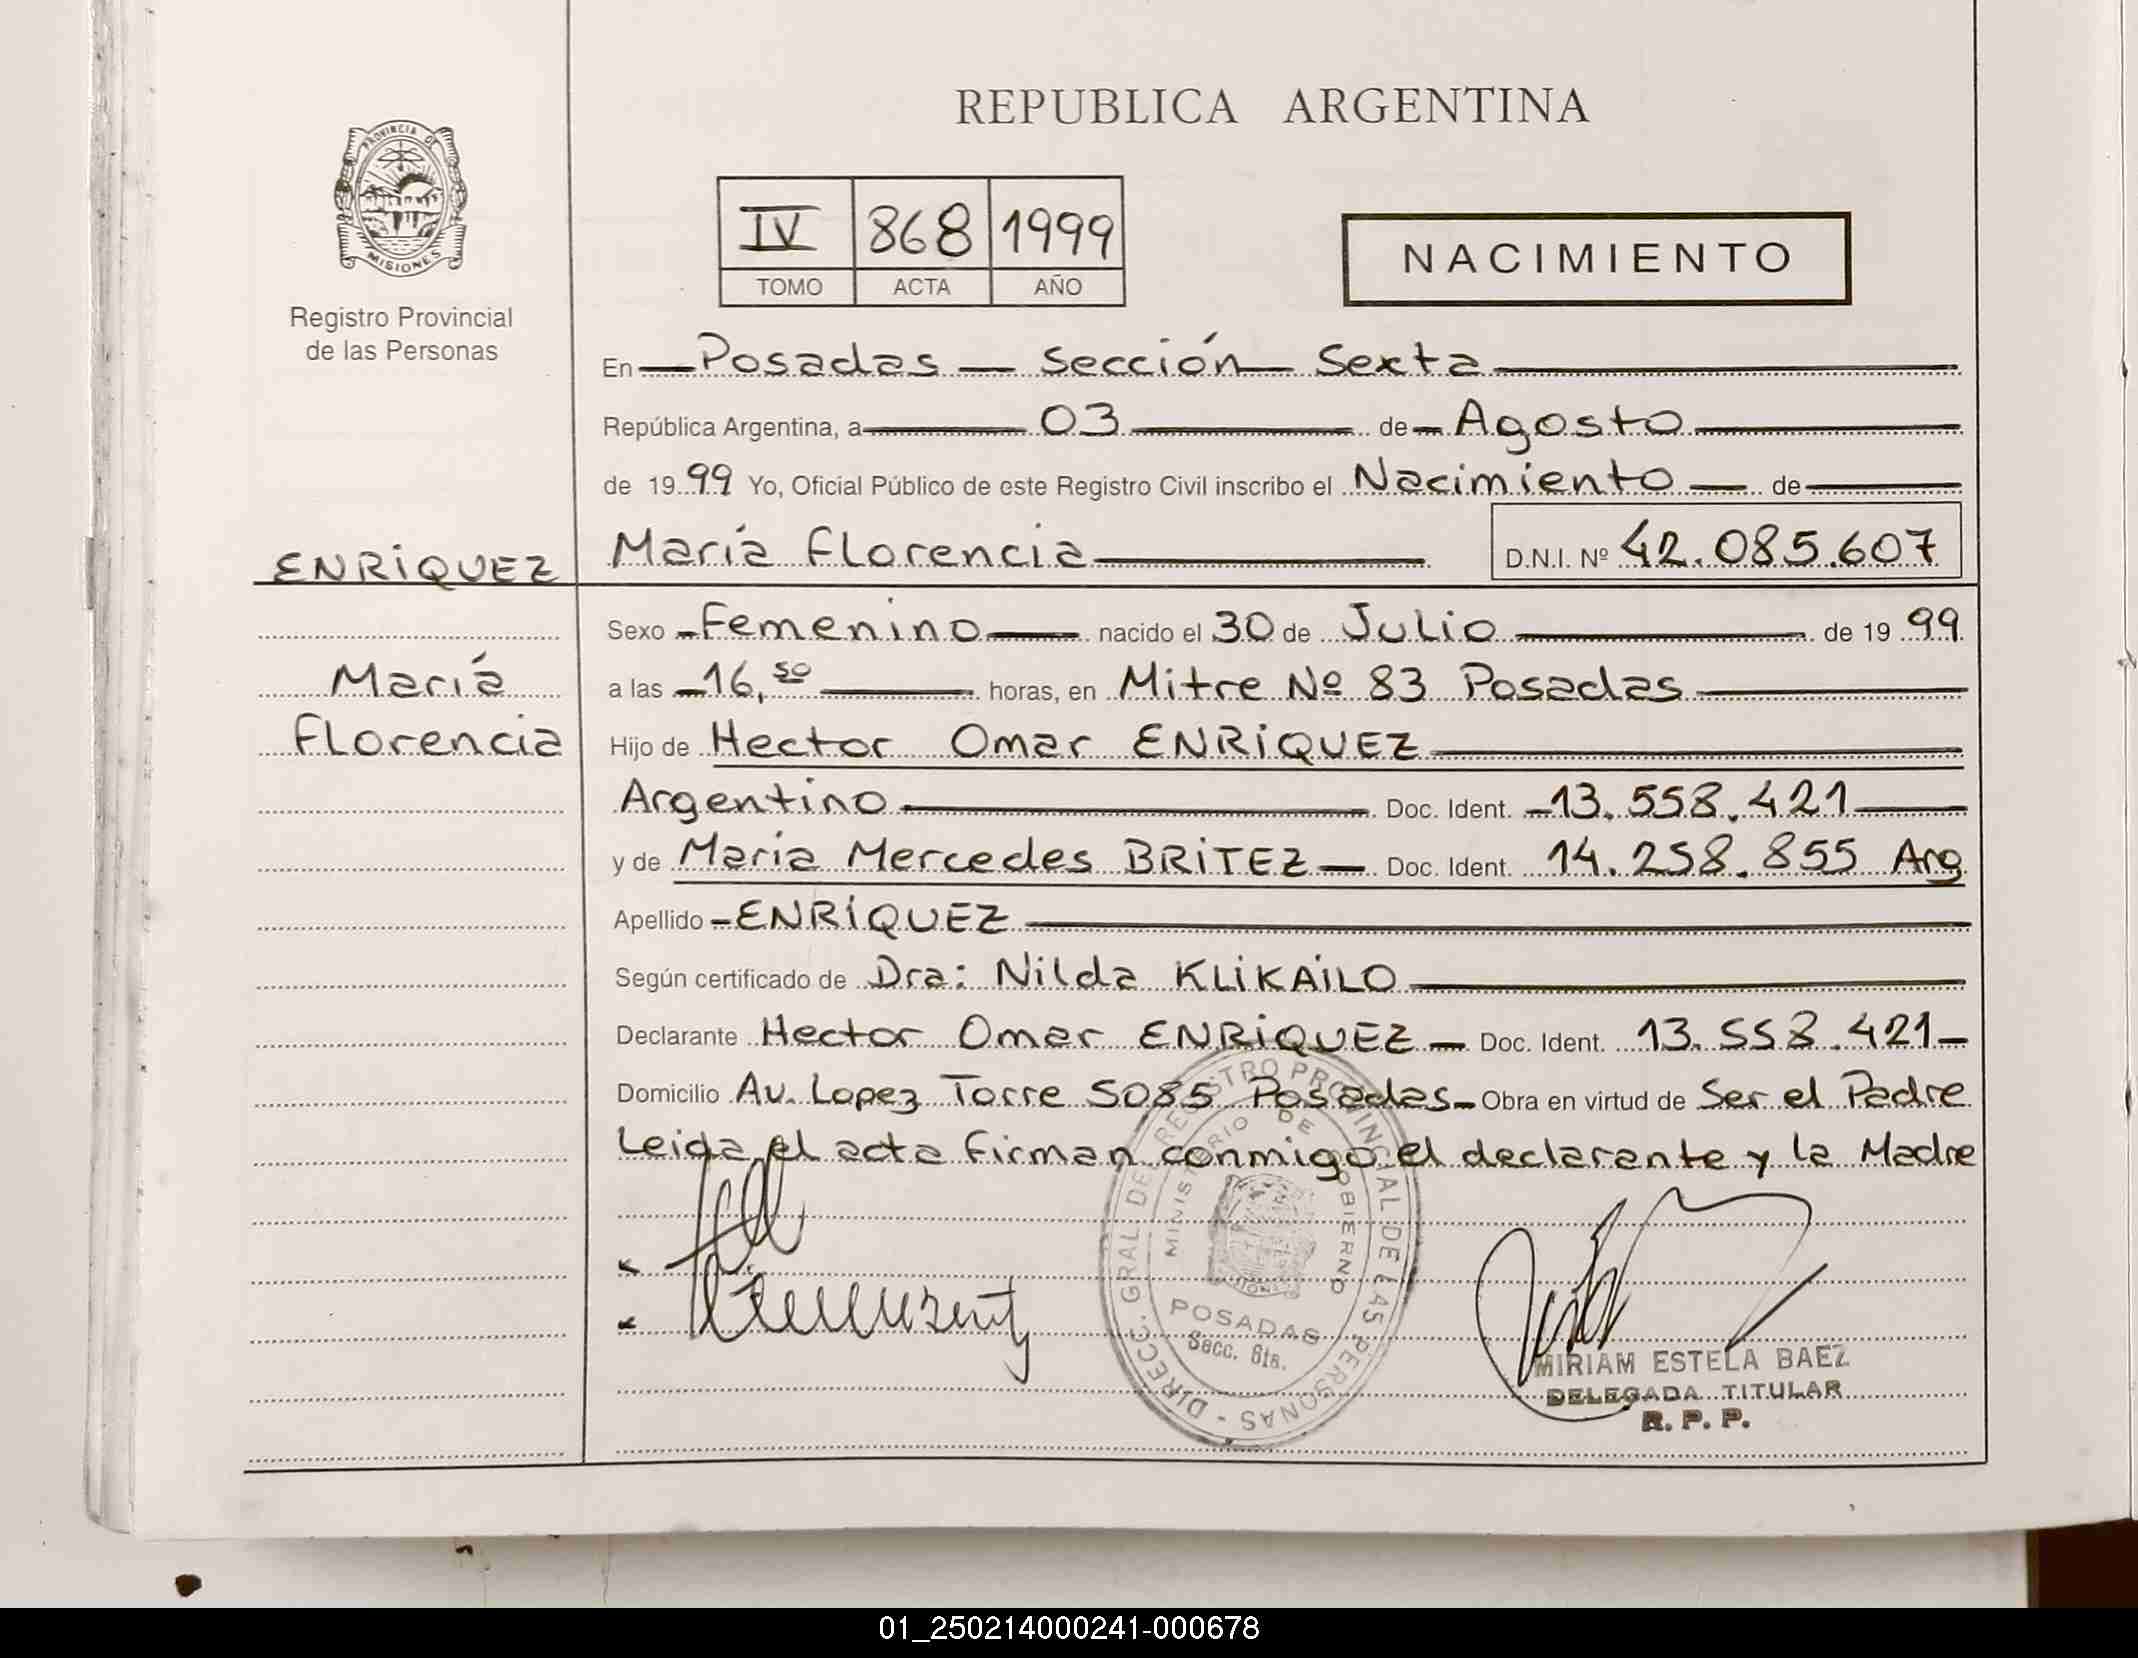 REPUBLICA ARGENTINA
PROVINCIA DE
MISIONES
Registro Provincial
de las Personas
IV 868 1999
TOMO ACTA AÑO
NACIMIENTO
En Posadas - Sección Sexta
República Argentina, a 03 de Agosto
de 1999 Yo, Oficial Público de este Registro Civil inscribo el Nacimiento de
María Florencia D.N.I. Nº 42.085.607
ENRiQUEZ
María
Florencia
Sexo Femenino nacido el 30 de Julio de 1999
a las 16,50 horas, en Mitre Nº 83 Posadas
Hijo de Hector Omar ENRiQUEZ
Argentino Doc. Ident. 13.558.421
y de Maria Mercedes BRiTEZ Doc. Ident. 14.258.855 Arg
Apellido ENRiQUEZ
Según certificado de Dra: Nilda KLiKAiLO
Declarante Hector Omar ENRiQUEZ Doc. Ident. 13.558.421
Domicilio Av. Lopez Torre 5085 Posadas Obra en virtud de Ser el Padre
Leida el acta firman conmigo el declarante y la Madre
DIRECC. GRAL. DE REGISTRO PROVINCIAL DE LAS PERSONAS
MINISTERIO DE GOBIERNO
POSADAS
Secc. 6ta.
MIRIAM ESTELA BAEZ
DELEGADA TITULAR
R. P. P.
01_250214000241-000678